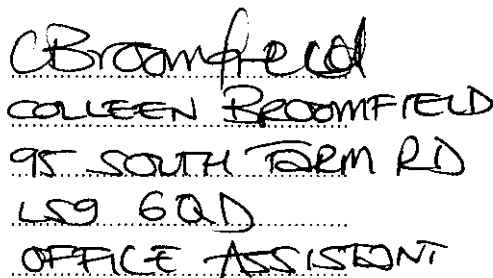 CBroomfield
COLLEEN BROOMFIELD
95 SOUTH FARM RD
LS9 6QD
OFFICE ASSISTANT